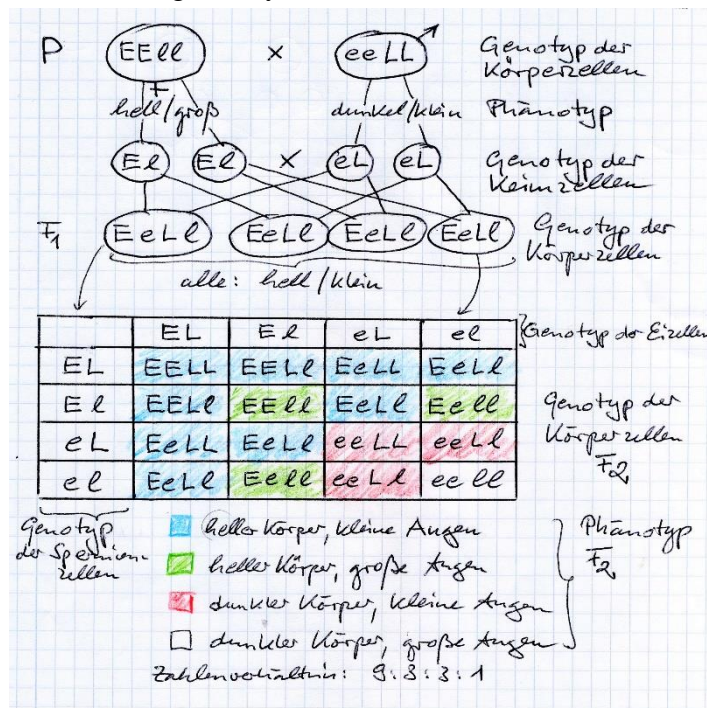 P EEll × eeLL Genotyp der
Körperzellen
hell/groß dunkel/klein Phänotyp
El El × eL eL Genotyp der
Keimzellen
F1 EeLl EeLl EeLl EeLl Genotyp der
Körperzellen
alle: hell/klein
EL El eL el Genotyp der Eizellen
EL EELL EELl EeLL EeLl
El EELl EEll EeLl Eell Genotyp der
eL EeLL EeLl eeLL eeLl Körperzellen
el EeLl Eell eeLl eell F2
Genotyp
der Spermien-
zellen
heller Körper, kleine Augen Phänotyp
heller Körper, große Augen F2
dunkler Körper, kleine Augen
dunkler Körper, große Augen
Zahlenverhältnis: 9:3:3:1